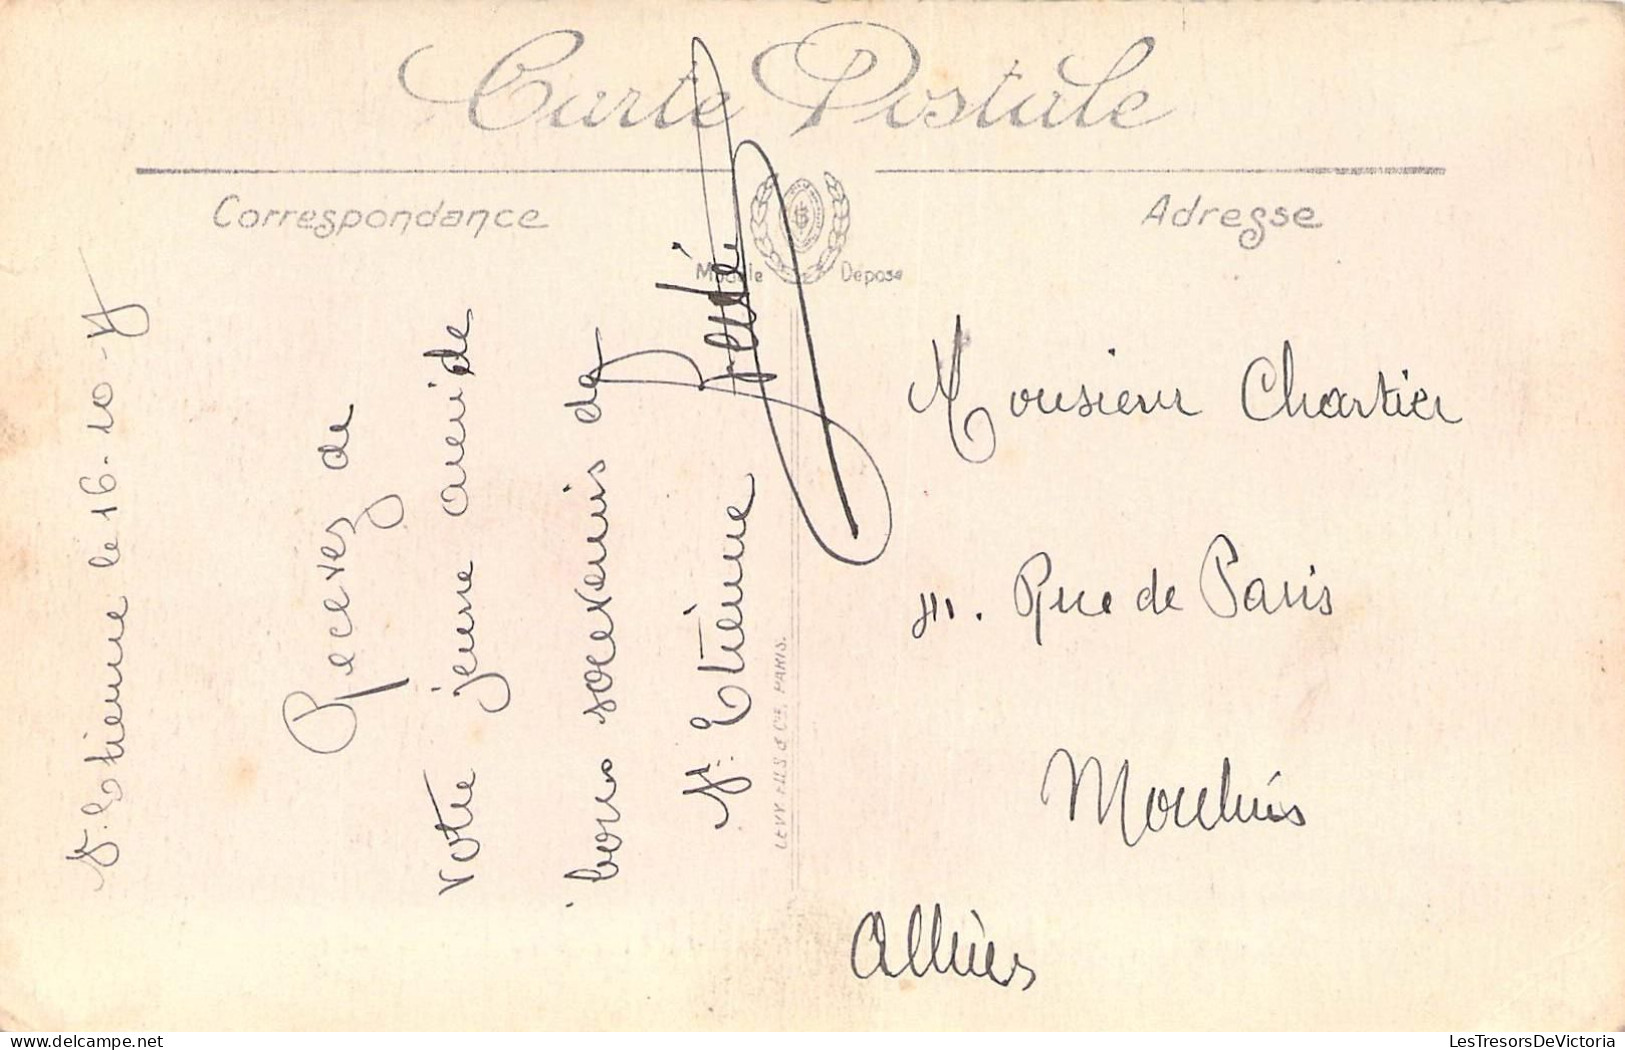 Carte Postale
Correspondance
Adresse
Modèle Déposé
St. Etienne le 16-10-
Recevez de
votre jeune ami de
bons souvenirs de
St. Etienne
LEVY FILS & Cie, PARIS.
Monsieur Chartier
Rue de Paris
Moulins
Allier
LesTresorsDeVictoria